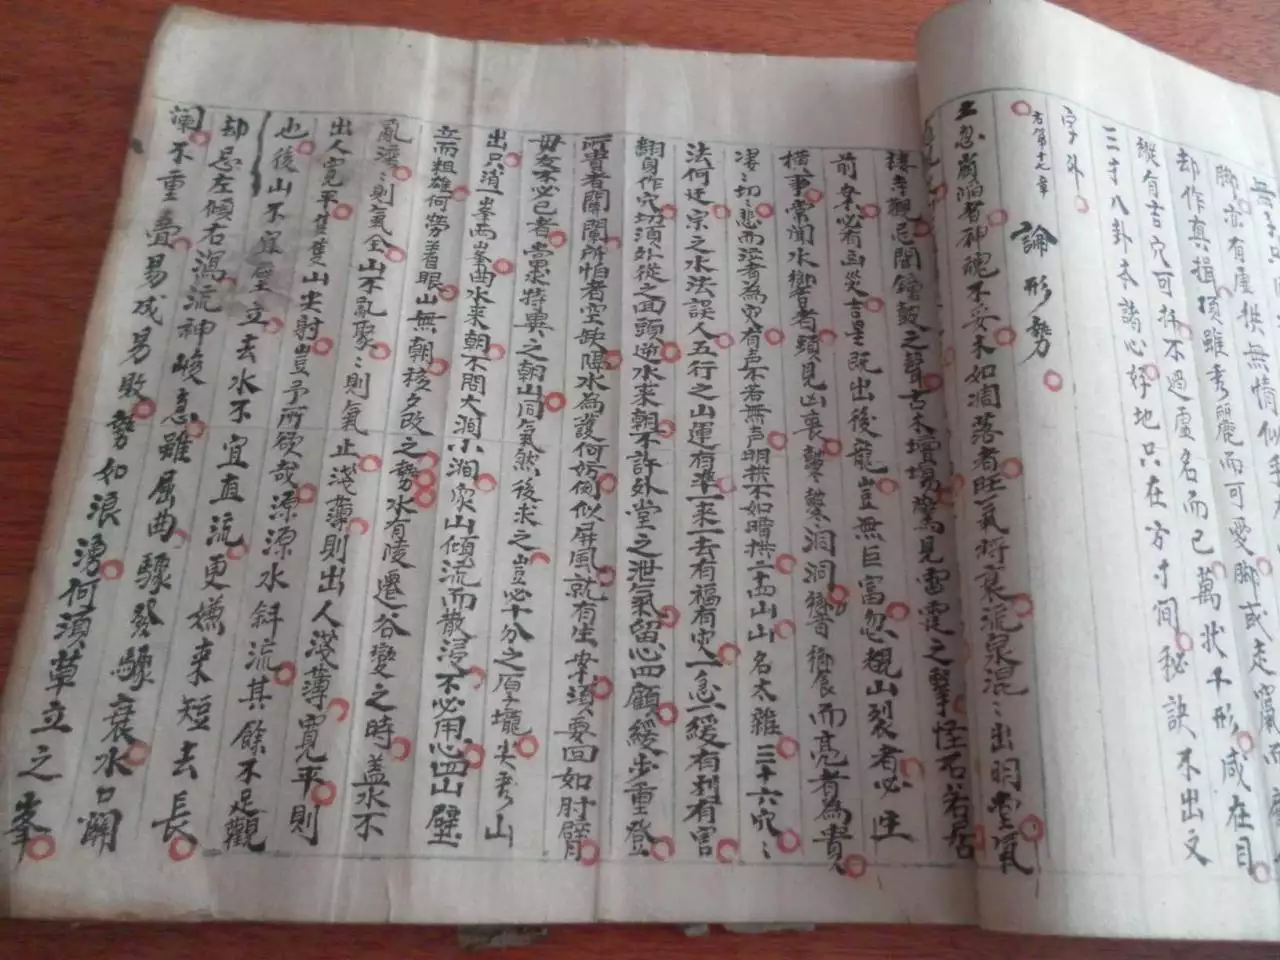 脚亦有虛拱無情似手
却作真揖頭雖秀麗而可愛脚或走竄而
縱有吉穴可扦不過虛名而已萬狀千形咸在目
三才八卦本諸心好地只在方寸間秘訣不出文
字外
右第十九章
論形勢
土忌崩陷者神魂不安木如凋落者旺氣將衰流泉混〻出明堂氣
觀忌聞鐘鼓之聲古木壇場驚見雷霆之擊怪石若居
前案必有凶災吉星既出後龍豈無巨富忽覩山裂者必生
橫事常聞水響者頻見凶喪鼕鼕洞洞響而亮者為貴
凄〻切〻悲而泣者為災有声不若無声明拱不如暗拱二十四山山名太雜三十六穴〻
法何迂宗之水法誤人五行之山運有準一来一去有福有災一急一緩有利有害
翻身作穴切須外從之面頭逆水来朝不許外堂之泄氣留心四顧緩步重登
所貴者闌闌所怕者空缺隔水為護何妨倒似屏風就有生案須要回如肘臂
毋友不必已者當求特異之朝山同氣然後求之豈必十分之厚壠尖秀山
出只消一峯兩峯曲水来朝不問大澗小澗衆山傾流而散漫不必用心四山壁
立而粗雄何勞着眼山無朝移夕改之勢水有陵遷谷變之時蓋水不
亂灣〻則氣全山不亂聚〻則氣止淺薄則出人淺薄寬平則
出人寬平隻隻山尖射豈予所欲哉源源水斜流其餘不足觀
也後山不宜壁立去水不宜直流更嫌来短去長
却忌左傾右瀉流神峻急雖屈曲驟發驟衰水口關
瀾不重疊易成易敗勢如浪湧何須卓立之峯